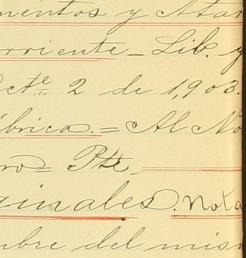 mentos y
rriente - Lib. y
Octe. 2 de 1,903.
ábrica. = Al No
ro= Pts.
ginales. Nota
mbre del mism